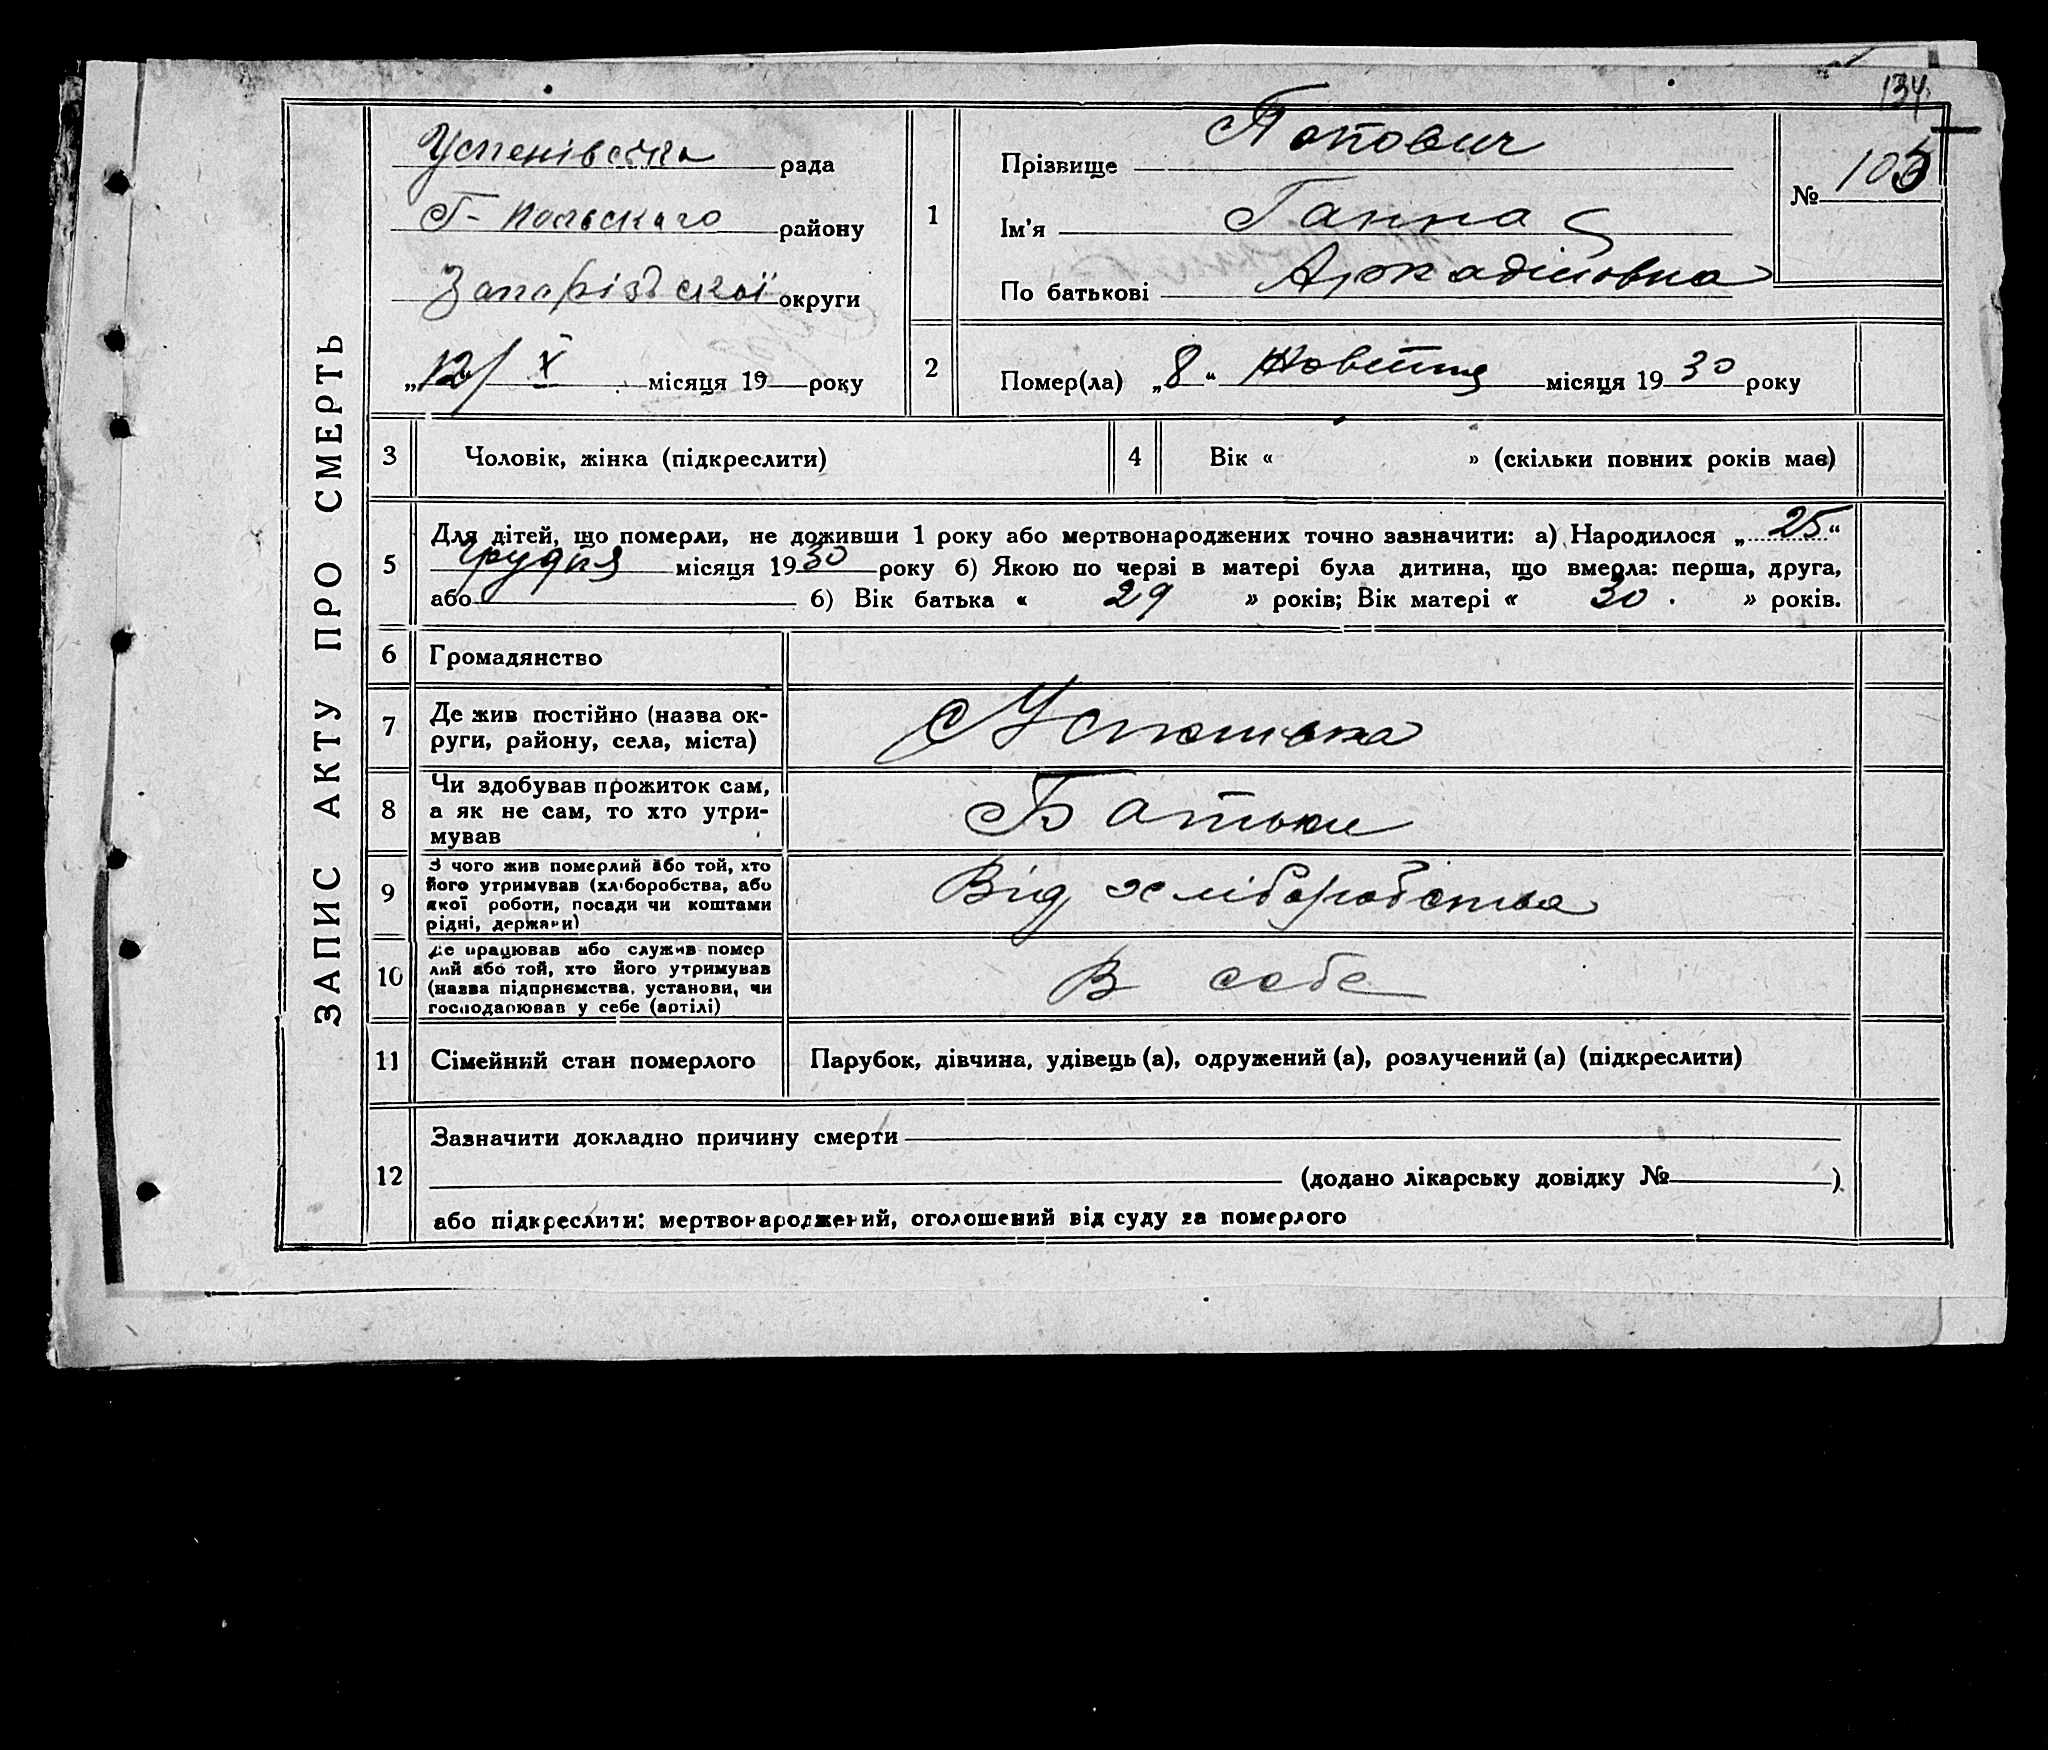 134
ЗАПИС АКТУ ПРО СМЕРТЬ
Успенівська рада
Г-Польского району
Запорізької округи
„12/ X місяця 19 року
1
Прізвище Попович
Ім'я Ганна
По батькові Аркадіївна
№ 105
2
Помер(ла) „8“ Жовтня місяця 1930 року
3 Чоловік, жінка (підкреслити)
4 Вік « » (скільки повних років має)
5
Для дітей, що померли, не доживши 1 року або мертвонароджених точно зазначити: а) Народилося „25“
Грудня місяця 1930 року б) Якою по черзі в матері була дитина, що вмерла: перша, друга,
або б) Вік батька « 29 » років; Вік матері « 30 . » років.
6 Громадянство
7 Де жив постійно (назва ок-
руги, району, села, міста)
Успенівка
8 Чи здобував прожиток сам,
а як не сам, то хто утри-
мував
Батьки
9 З чого жив померлий або той, хто
його утримував (хліборобства, або
якої роботи, посади чи коштами
рідні, держави)
Від хліборобства
10 Де працював або служив помер
лий або той, хто його утримував
(назва підприємства, установи, чи
господарював у себе (артілі)
В себе
11 Сімейний стан померлого
Парубок, дівчина, удівець (а), одружений (а), розлучений (а) (підкреслити)
12
Зазначити докладно причину смерти
(додано лікарську довідку № )
або підкреслити: мертвонароджений, оголошений від суду за померлого